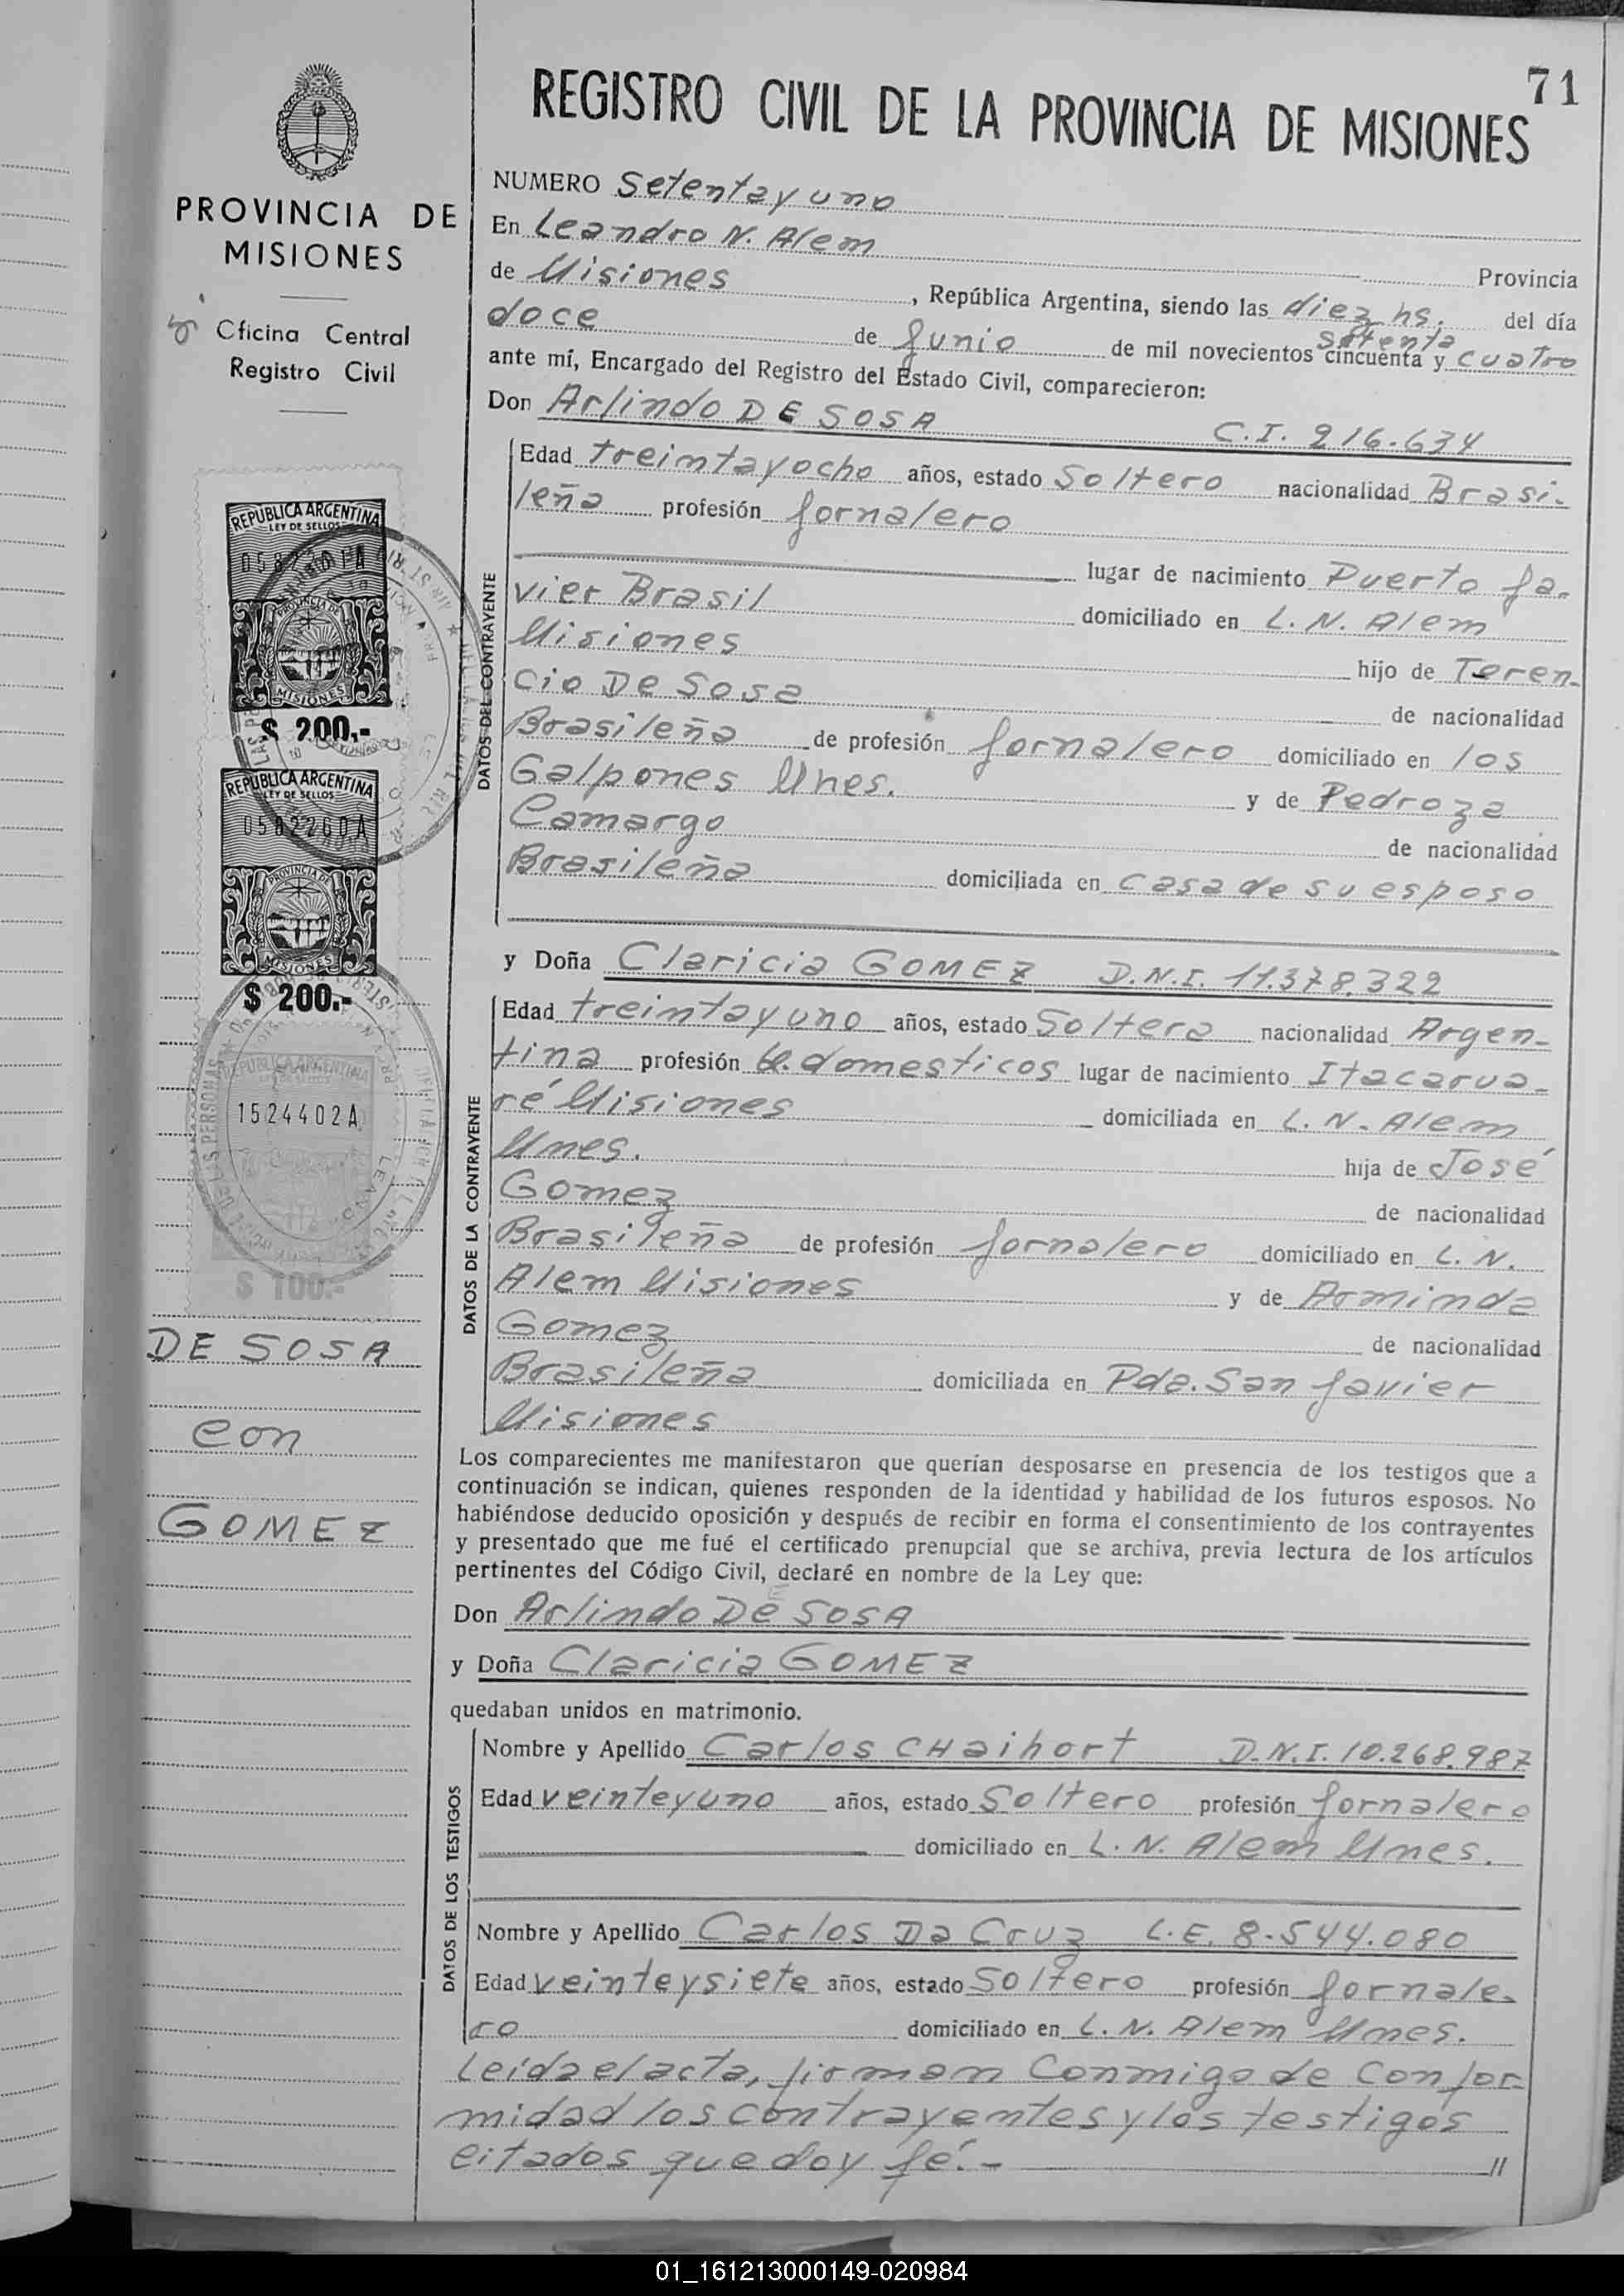 71
REGISTRO CIVIL DE LA PROVINCIA DE MISIONES
PROVINCIA DE
MISIONES
Oficina Central
Registro Civil
REPUBLICA ARGENTINA
LEY DE SELLOS
PROVINCIA DE
MISIONES
$ 200.-
REPUBLICA ARGENTINA
LEY DE SELLOS
0582260A
PROVINCIA DE
MISIONES
$ 200.-
REPUBLICA ARGENTINA
1524402A
$ 100.-
DE SOSA
con
GOMEZ
NUMERO Setenta y uno
En Leandro N. Alem
Provincia
de Misiones, República Argentina, siendo las diez hs. del día
doce de Junio de mil novecientos cincuenta setenta y cuatro
ante mí, Encargado del Registro del Estado Civil, comparecieron:
Don Arlindo DE SOSA C.I. 216.634
DATOS DEL CONTRAYENTE
Edad treinta y ocho años, estado Soltero nacionalidad Brasi-
leña profesión Jornalero
lugar de nacimiento Puerto Ja-
vier Brasil domiciliado en L. N. Alem
Misiones hijo de Teren-
cio De Sosa de nacionalidad
Brasileña de profesión Jornalero domiciliado en los
Galpones Mnes. y de Pedroza
Camargo de nacionalidad
Brasileña domiciliada en casa de su esposo
y Doña Claricia GOMEZ D.N.I. 11.378.322
DATOS DE LA CONTRAYENTE
Edad treinta y uno años, estado Soltera nacionalidad Argen-
tina profesión Q. domesticos lugar de nacimiento Itacarua-
ré Misiones domiciliada en L. N. Alem
Mnes. hija de José
Gomez de nacionalidad
Brasileña de profesión Jornalero domiciliado en L. N.
Alem Misiones y de Arminda
Gomez de nacionalidad
Brasileña domiciliada en Pda. San Javier
Misiones
Los comparecientes me manifestaron que querían desposarse en presencia de los testigos que a
continuación se indican, quienes responden de la identidad y habilidad de los futuros esposos. No
habiéndose deducido oposición y después de recibir en forma el consentimiento de los contrayentes
y presentado que me fué el certificado prenupcial que se archiva, previa lectura de los artículos
pertinentes del Código Civil, declaré en nombre de la Ley que:
Don Arlindo DE SOSA
y Doña Claricia GOMEZ
quedaban unidos en matrimonio.
DATOS DE LOS TESTIGOS
Nombre y Apellido Carlos CHaihort D.N.I. 10.268.987
Edad veinteyuno años, estado Soltero profesión Jornalero
domiciliado en L. N. Alem Mnes.
Nombre y Apellido Carlos Da Cruz L.E. 8.544.080
Edad veinteysiete años, estado Soltero profesión Jornale-
ro domiciliado en L. N. Alem Mnes.
Leida el acta, firman conmigo de confor-
midad los contrayentes y los testigos
citados que doy fé.- //
01_161213000149-020984